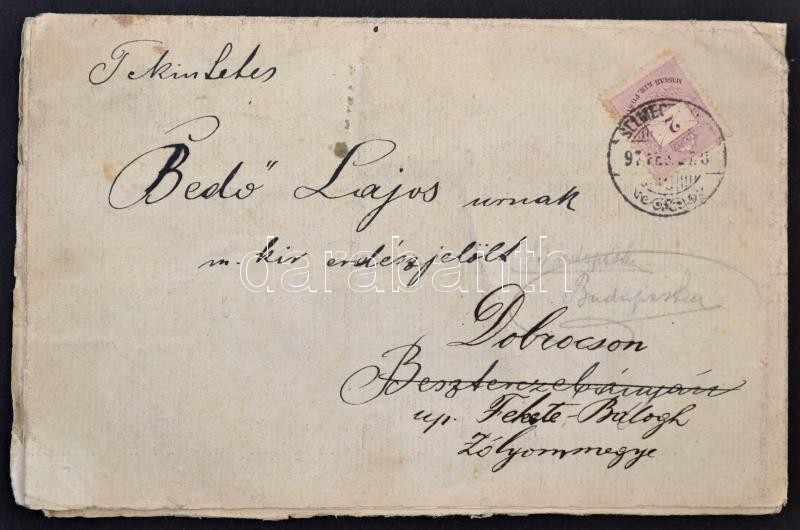 Tekintetes
Bedő Lajos urnak
m. kir erdészjelölt
Budapesten
Dobrocson
Beszterczebányán
up. Fekete-Balogh
Zólyommegye
MAGYAR KIR. POSTA
2
SELMECZ
97 FEB
darabanth